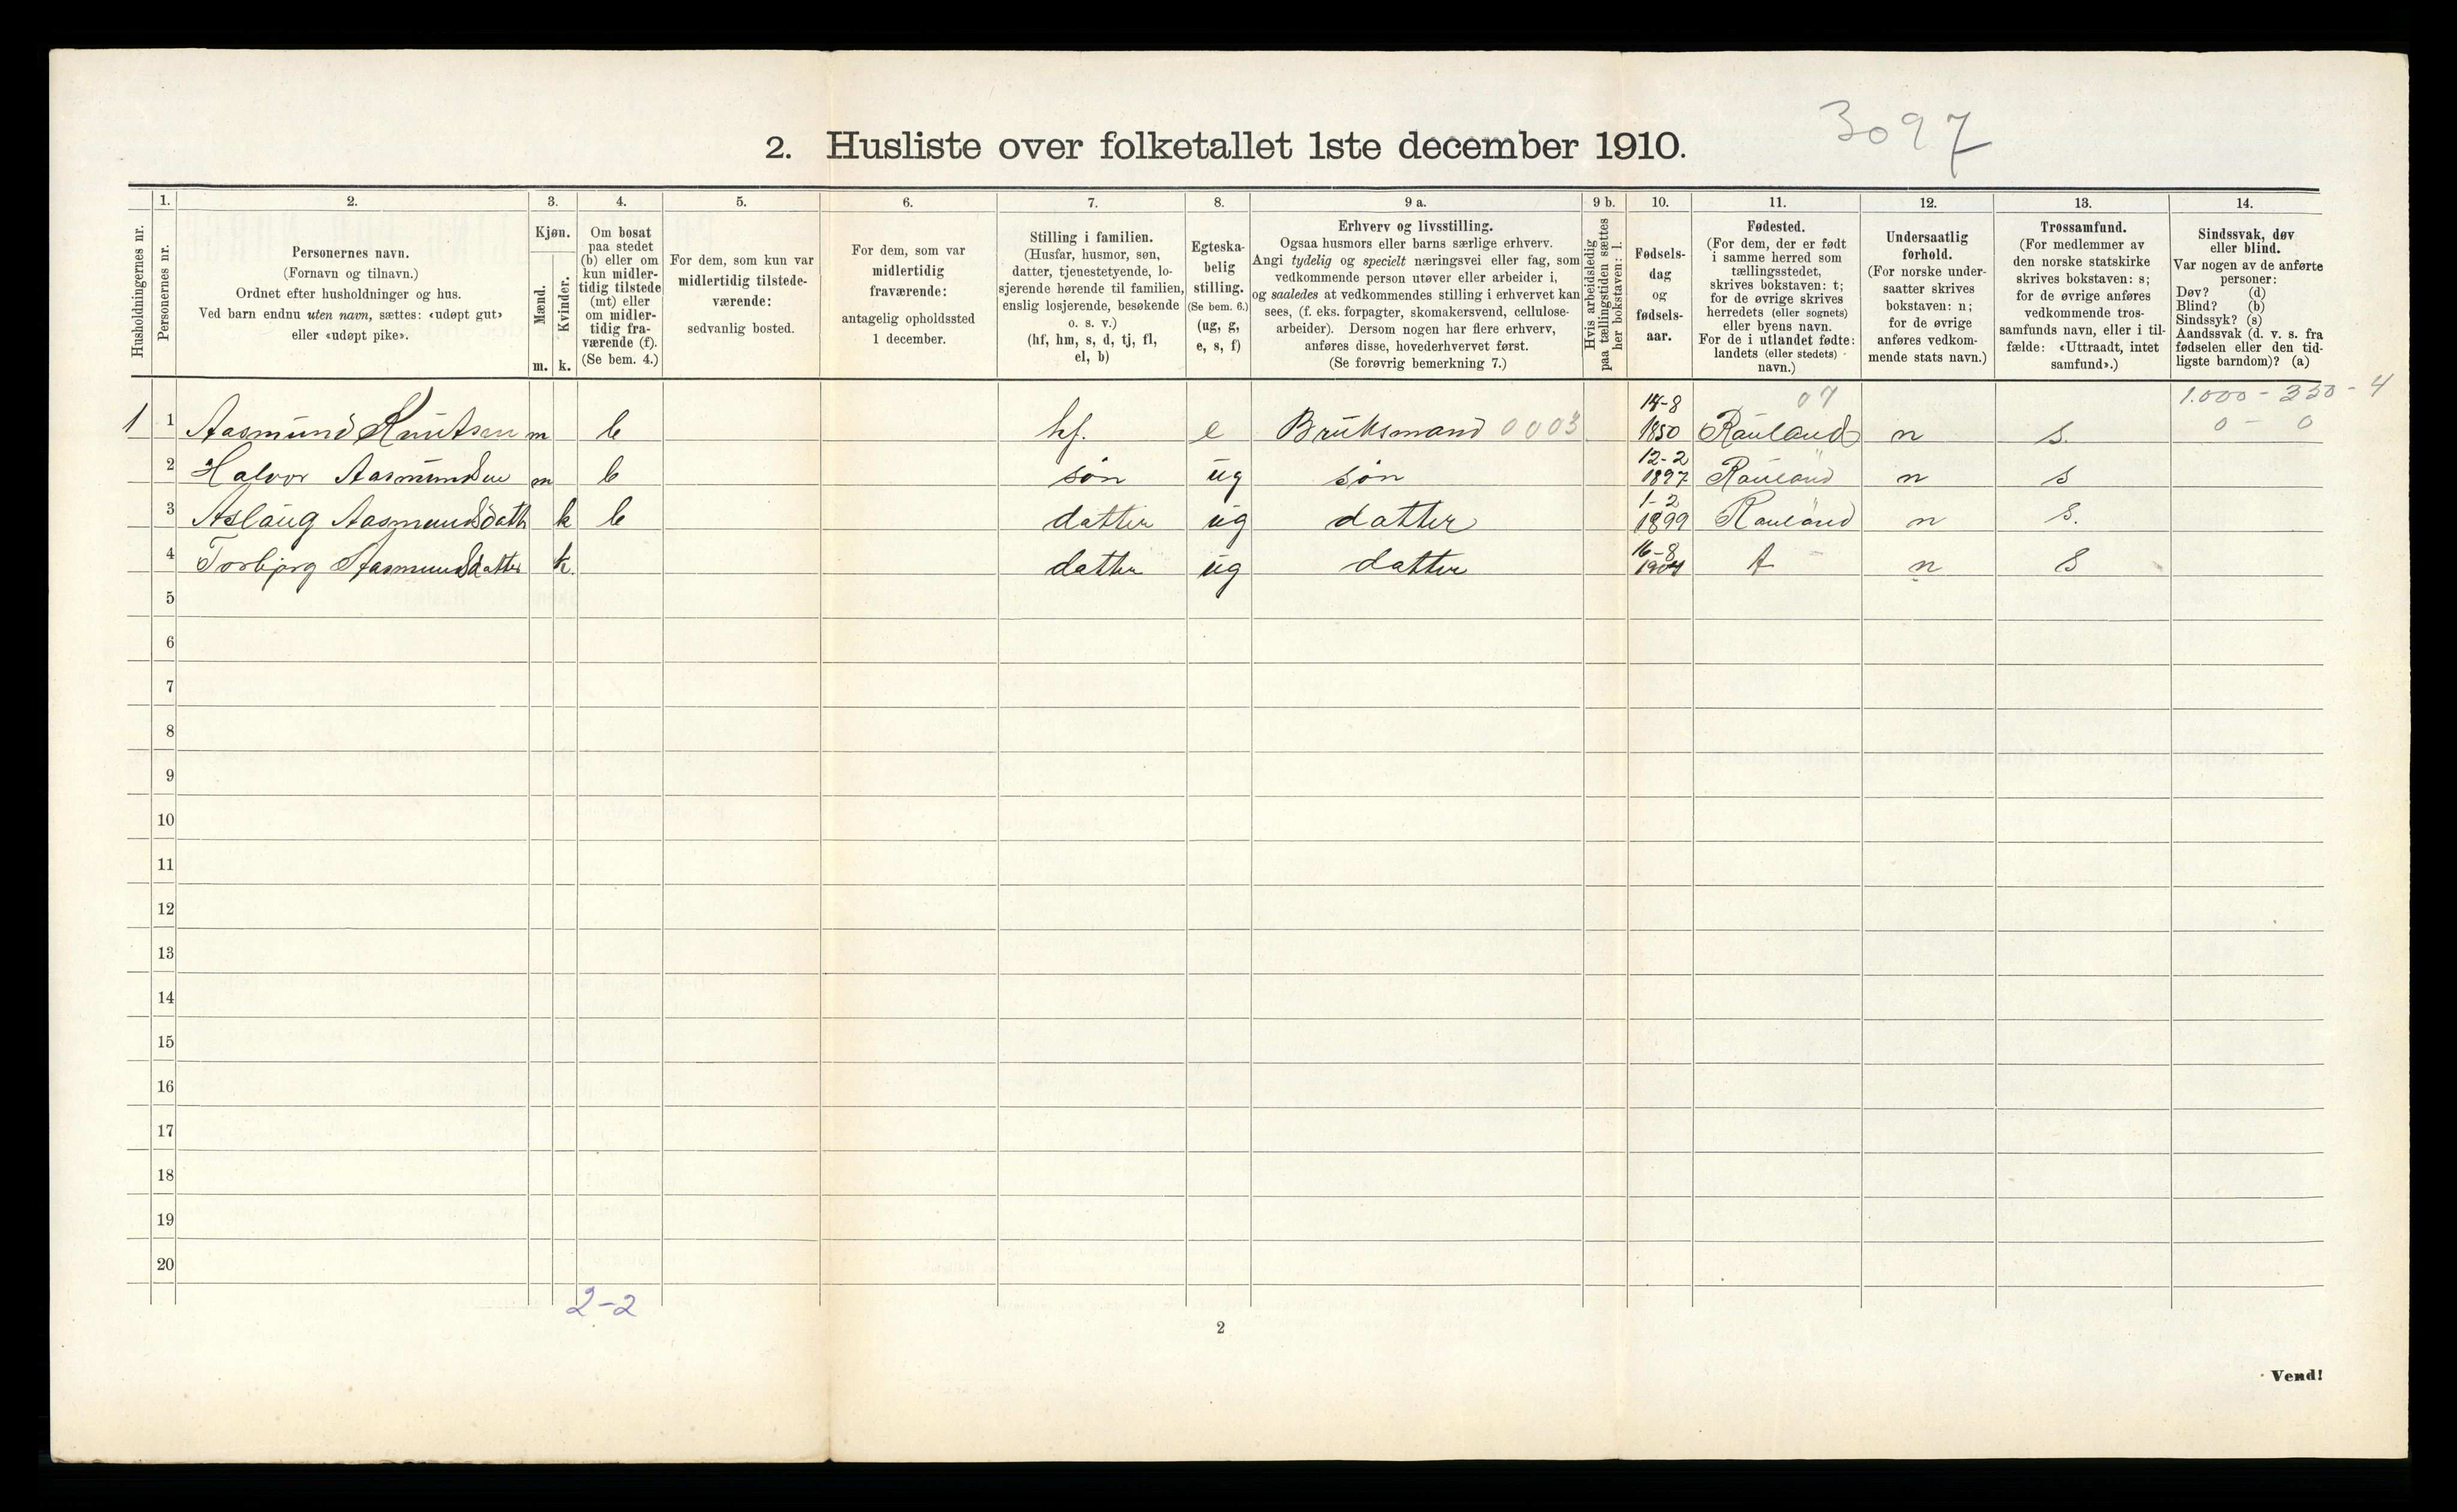 3097
2. Husliste over folketallet 1ste december 1910.
1. 2. 3. 4. 5. 6. 7. 8. 9 a. 9 b. 10. 11. 12. 13. 14.
Husholdningernes nr.
Personernes nr.
Personernes navn.
(Fornavn og tilnavn.)
Ordnet efter husholdninger og hus.
Ved barn endnu uten navn, sættes: «udøpt gut»
eller «udøpt pike».
Kjøn.
Mænd.
Kvinder.
m. k.
Om bosat
paa stedet
(b) eller om
kun midler-
tidig tilstede
(mt) eller
om midler-
tidig fra-
værende (f).
(Se bem. 4.)
For dem, som kun var
midlertidig tilstede-
værende:
sedvanlig bosted.
For dem, som var
midlertidig
fraværende:
antagelig opholdssted
1 december.
Stilling i familien.
(Husfar, husmor, søn,
datter, tjenestetyende, lo-
sjerende hørende til familien,
enslig losjerende, besøkende
o. s. v.)
(hf, hm, s, d, tj, fl,
el, b)
Egteska-
belig
stilling.
(Se bem. 6.)
(ug, g,
e, s, f)
Erhverv og livsstilling.
Ogsaa husmors eller barns særlige erhverv.
Angi tydelig og specielt næringsvei eller fag, som
vedkommende person utøver eller arbeider i,
og saaledes at vedkommendes stilling i erhvervet kan
sees, (f. eks. forpagter, skomakersvend, cellulose-
arbeider). Dersom nogen har flere erhverv,
anføres disse, hovederhvervet først.
(Se forøvrig bemerkning 7.)
Hvis arbeidsledig
paa tællingstiden sættes
her bokstaven: l.
Fødsels-
dag
og
fødsels-
aar.
Fødested.
(For dem, der er født
i samme herred som
tællingsstedet,
skrives bokstaven: t;
for de øvrige skrives
herredets (eller sognets)
eller byens navn.
For de i utlandet fødte:
landets (eller stedets)
navn.)
Undersaatlig
forhold.
(For norske under-
saatter skrives
bokstaven: n;
for de øvrige
anføres vedkom-
mende stats navn.)
Trossamfund.
(For medlemmer av
den norske statskirke
skrives bokstaven: s;
for de øvrige anføres
vedkommende tros-
samfunds navn, eller i til-
fælde: «Uttraadt, intet
samfund».)
Sindssvak, døv
eller blind.
Var nogen av de anførte
personer:
Døv? (d)
Blind? (b)
Sindssyk? (s)
Aandssvak (d. v. s. fra
fødselen eller den tid-
ligste barndom)? (a)
1 1 Aasmund Knutsen m b hf. e Bruksmand 0003 14-8 1850 07 Rauland n s. 1.000 - 330 - 4
0 - 0
2 Halvor Aasmundsen m b søn ug søn 12-2 1897 Rauland n s
3 Aslaug Aasmundsdatt k b datter ug datter 1-2 1899 Rauland n s.
4 Torbjørg Aasmundsdatter k. datter ug datter 16-8 1904 t n s
5
6
7
8
9
10
11
12
13
14
15
16
17
18
19
20
2-2
2
Vend!